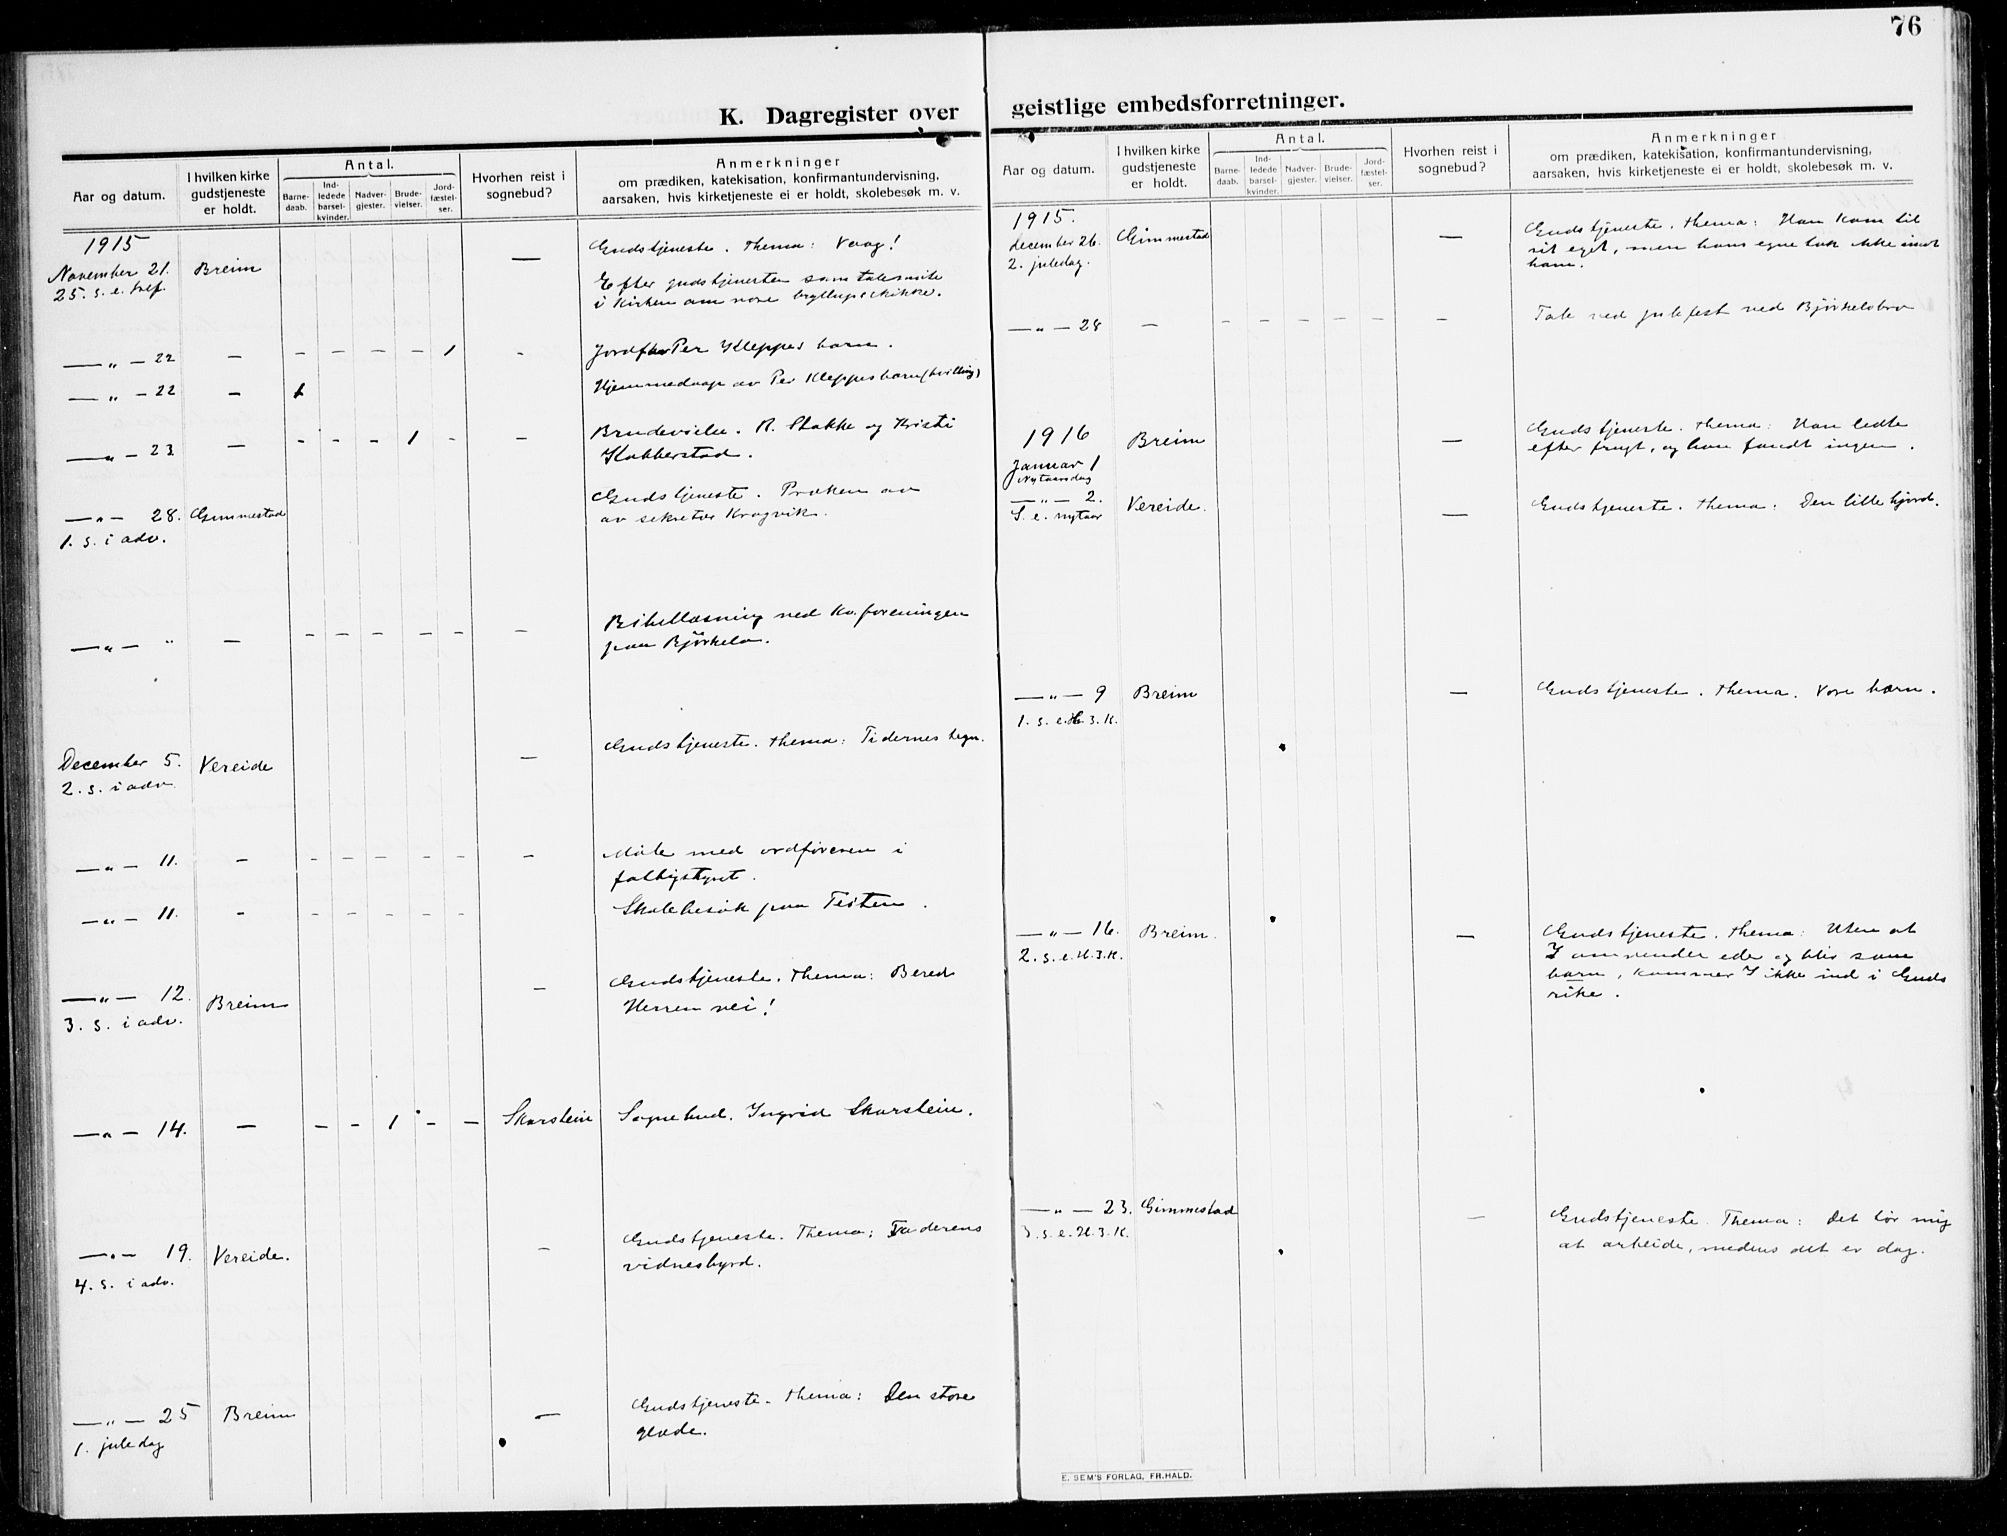 76
K. Dagregister over geistlige embedsforretninger.
Aar og datum.
I hvilken kirke gudstjeneste er holdt.
Antal.
Barne-daab.
Ind-ledede barsel-kvinder.
Nadver-gjester.
Brude-vielser.
Jord-fæstel-ser.
Hvorhen reist i sognebud?
Anmerkninger
om prædiken, katekisation, konfirmantundervisning,
aarsaken, hvis kirketjeneste ei er holdt, skolebesøk m. v.
1915
November 21. Breim — Gudstjeneste. Thema: Vaag!
25. s. e. tref.
Efter gudstjenesten samtalemøte
i kirken om vore bryllupsskikke.
— „ — 22 — - - - - 1 - Jordf. Per Kleppes barn.
— „ — 22 — 1 Hjemmedaap av Per Kleppes barn (tvilling)
— „ — 23 — - - - 1 - — Brudevielse. R. Stokke og Kristi
— „ — 28. Gimmestad Gudstjeneste. Præken av
1. s. i adv. av sekretær Kragvik.
— „ — „ — - - - - - — Bibellæsning ved Kv.foreningen
paa Bjørkelo.
December 5. Vereide — Gudstjeneste. Thema: Tidernes tegn.
2. s. i adv.
— „ — 11. - - - - - - - Møte med ordføreren i
fattigstyret.
— „ — 11. - - - - - - Skolebesøk paa Teiten.
— „ — 12. Breim — Gudstjeneste. Thema: Bered
3. s. i adv. Herren vei!
— „ — 14. — - - 1 - - Skarstein Sognebud. Ingrid Skarstein.
— „ — 19. Vereide. — Gudstjeneste. Thema: Faderens
4. s. i adv. vidnesbyrd.
— „ — 25 Breim — Gudstjeneste. Thema: Den store
1. juledag glæde.
Aar og datum.
I hvilken kirke gudstjeneste er holdt.
Antal.
Barne-daab.
Ind-ledede barsel-kvinder.
Nadver-gjester.
Brude-vielser.
Jord-fæstel-ser.
Hvorhen reist i sognebud?
Anmerkninger
om prædiken, katekisation, konfirmantundervisning,
aarsaken, hvis kirketjeneste ei er holdt, skolebesøk m. v.
1915.
December 26. Gimmestad — Gudstjeneste. Thema: Han kom til
2. juledag. sit eget, men hans egne tok ikke imot
ham.
— „ — 28 — - - - - - - Tale ved julefest ved Bjørkelobro
1916 Breim — Gudstjeneste. Thema: Han ledte
Januar 1 efter frugt, og han fandt ingen.
Nytaarsdag
— „ — 2. Vereide. — Gudstjeneste. Thema: Den lille hjord.
S. e. nytaar
— „ — 9 Breim — Gudstjeneste. Thema. Vore børn.
1. s. e. H. 3. K.
— „ — 16. Breim. — Gudstjeneste. Thema: Uten at
2. s. e. H. 3. K. I omvender eder og blir som
barn, kommer I ikke ind i Guds
rike.
— „ — 23. Gimmestad — Gudstjeneste. Thema: Det bør mig
3. s. e. H. 3. K. at arbeide, medens det er dag.
E. SEM'S FORLAG, FR.HALD.